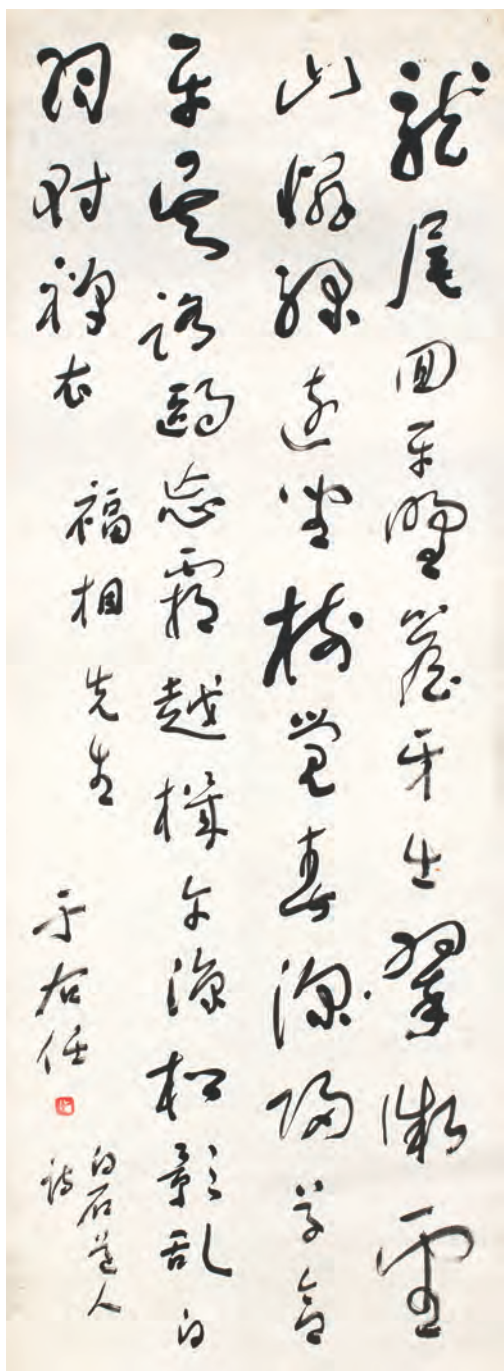 龍尾回平野簷牙出翠微望
山憐綠遠坐樹覺春深歸草合
平吳路鷗忘霸越機午涼松影乱白
羽對禪衣
福相先生
于右任
白石道人
詩